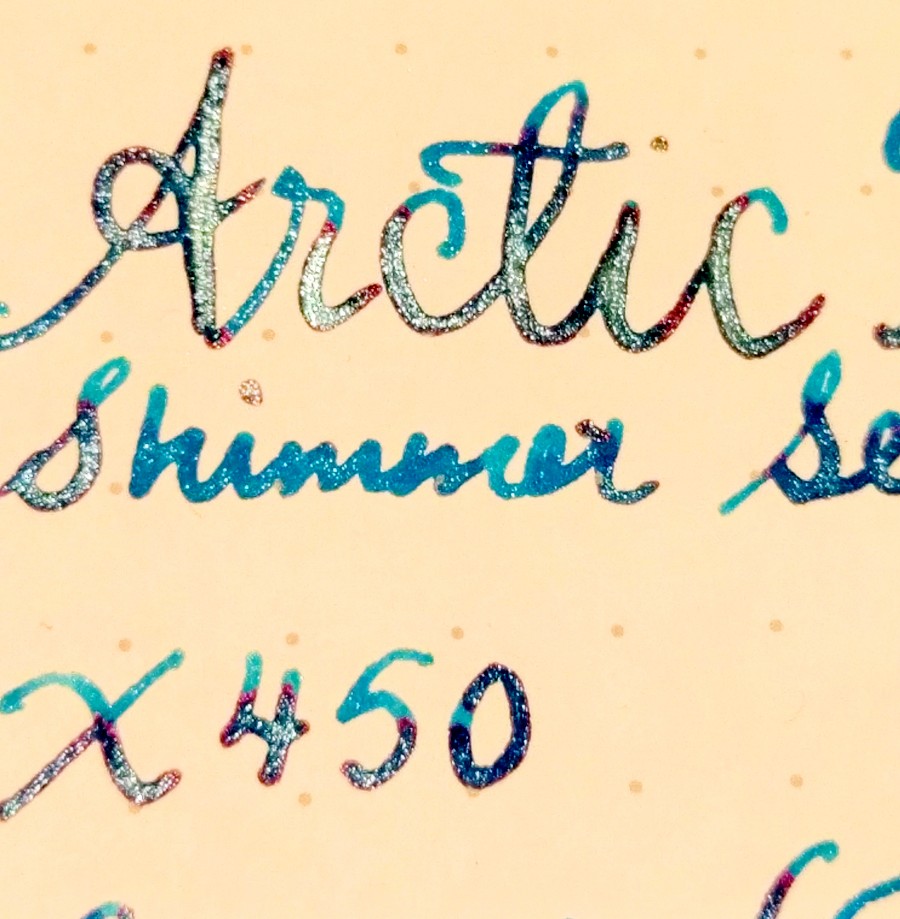 Arctic
Shimmer Se
X 450